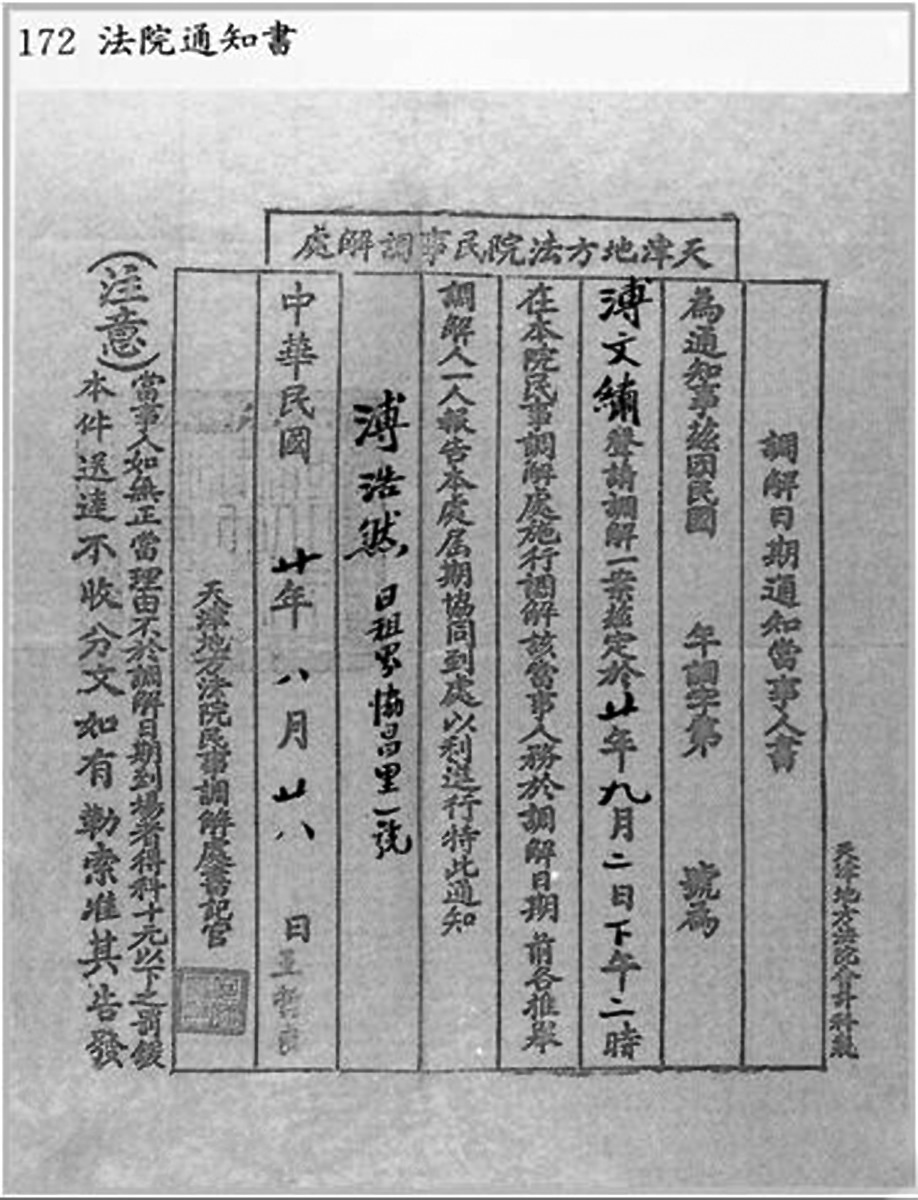 172 法院通知書
天津地方法院民事調解處
天津地方法院會計科製
調解日期通知當事人書
為通知事茲因民國 年調字第 號為
溥文繡聲請調解一案茲定於廿年九月二日下午二時
在本院民事調解處施行調解該當事人務於調解日期前各推舉
調解人一人報告本處屆期協同到處以利進行特此通知
溥浩然 日租界協昌里一號
中華民國 廿年 八月 廿八 日
天津地方法院民事調解處書記官
(注意)
當事人如無正當理由不於調解日期到場者得科十元以下之罰鍰
本件送達不收分文如有勒索准其告發